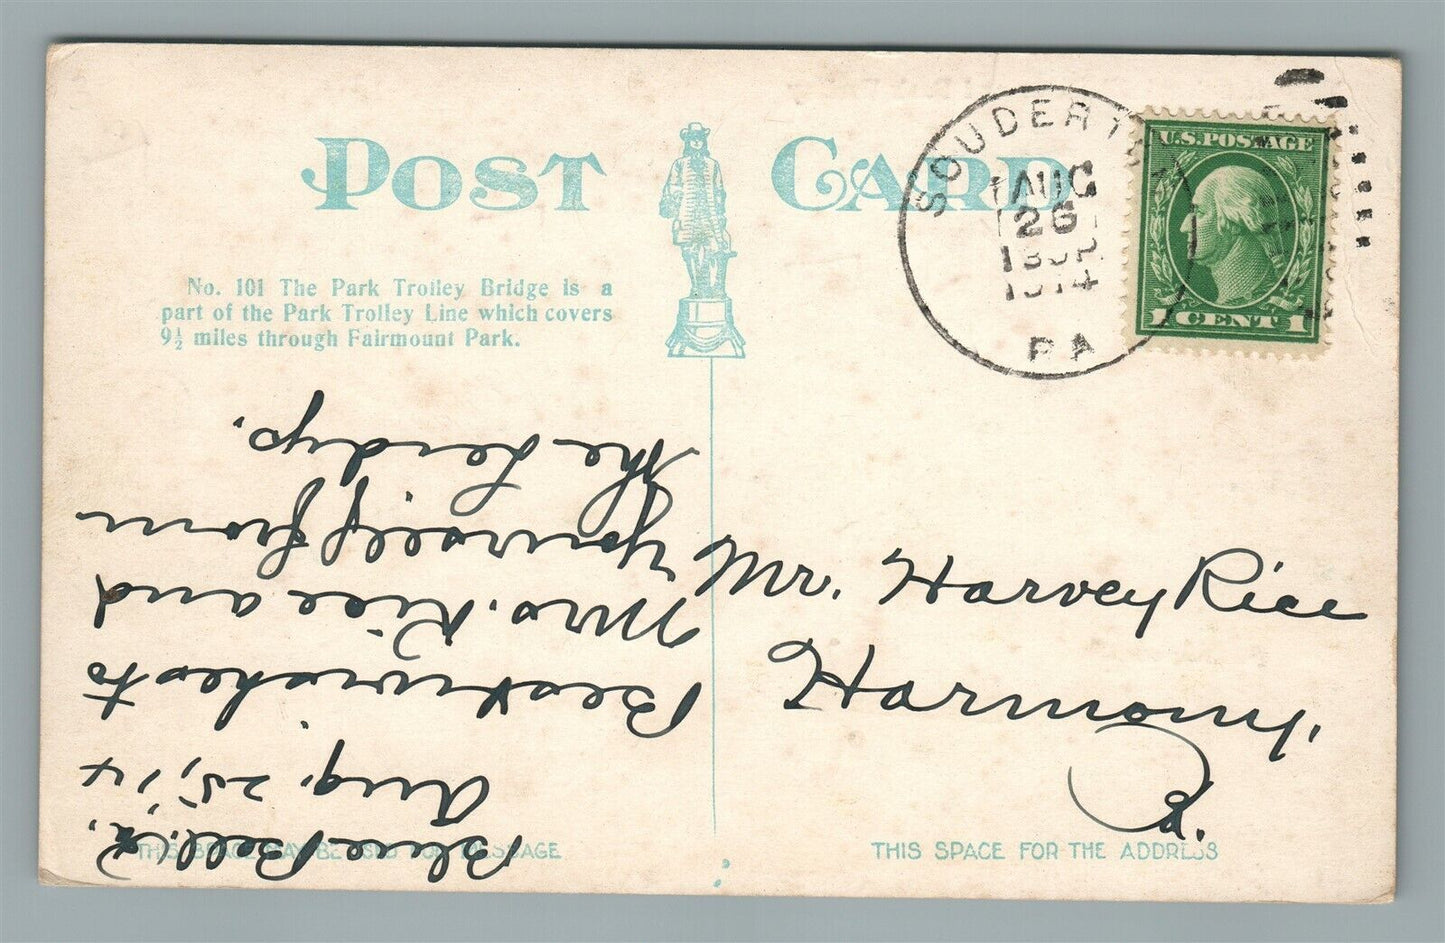 POST CARD
No. 101 The Park Trolley Bridge is a
part of the Park Trolley Line which covers
9½ miles through Fairmount Park.
SOUDERT
AUG
26
1914
PA
U.S. POSTAGE
1 CENT 1
Blue Bell, Pa.
Aug. 25, '14
Best wishes to
Mrs. Rice and
yourself from
the
Mr. Harvey Rice
Harmon,
Pa.
THIS SPACE MAY BE USED FOR MESSAGE
THIS SPACE FOR THE ADDRESS